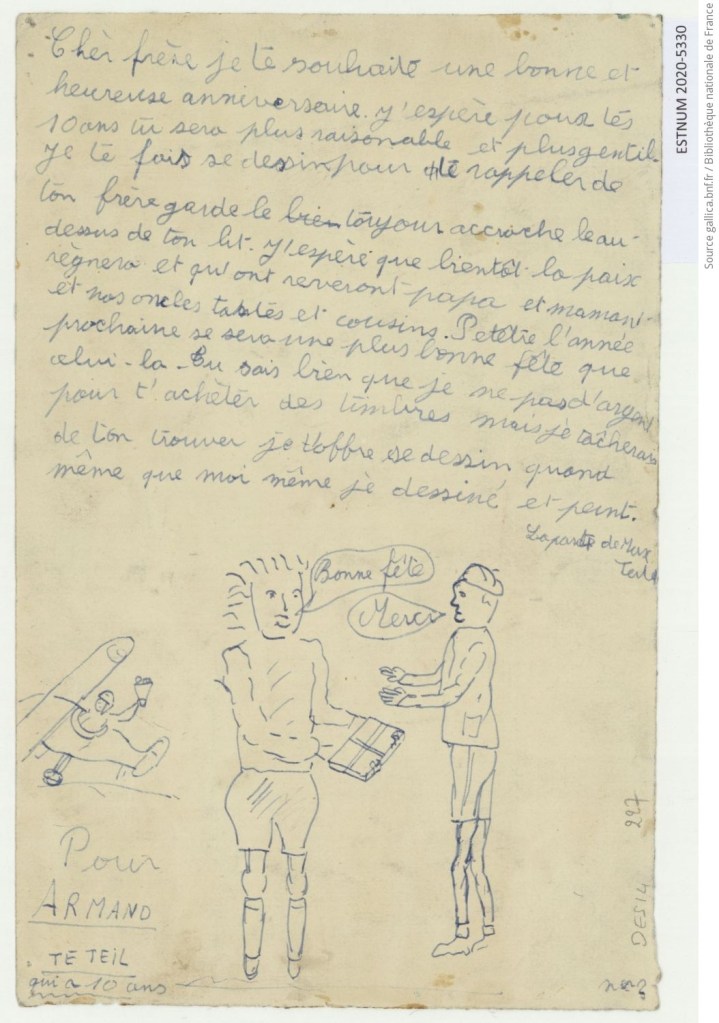 Chèr frère je te souhaite une bonne et
heureuse anniversaire. y'espère pour tés
10 ans tu sera plus raisonable et plus gentil.
Je te fais se dessin pour te rappeler de
ton frère garde le bien toujour accroche le au-
dessus de ton lit. y'espère que bientôt la paix
règnera et qu'ont reveront papa et maman
et nos oncles tantes et cousins. Petètre l'année
prochaine se sera une plus bonne fête que
celui-la. Tu sais bien que je ne pas d'argent
pour t'achèter des timbres mais je tâcherais
de t'on trouver je t'offre se dessin quand
même que moi même jè dessiné et peint.
La part de Max
Bonne fête
Merci
Pour
ARMAND
TETEIL
qui a 10 ans
227
DESIG
ESTNUM 2020-5330
Source gallica.bnf.fr / Bibliothèque nationale de France